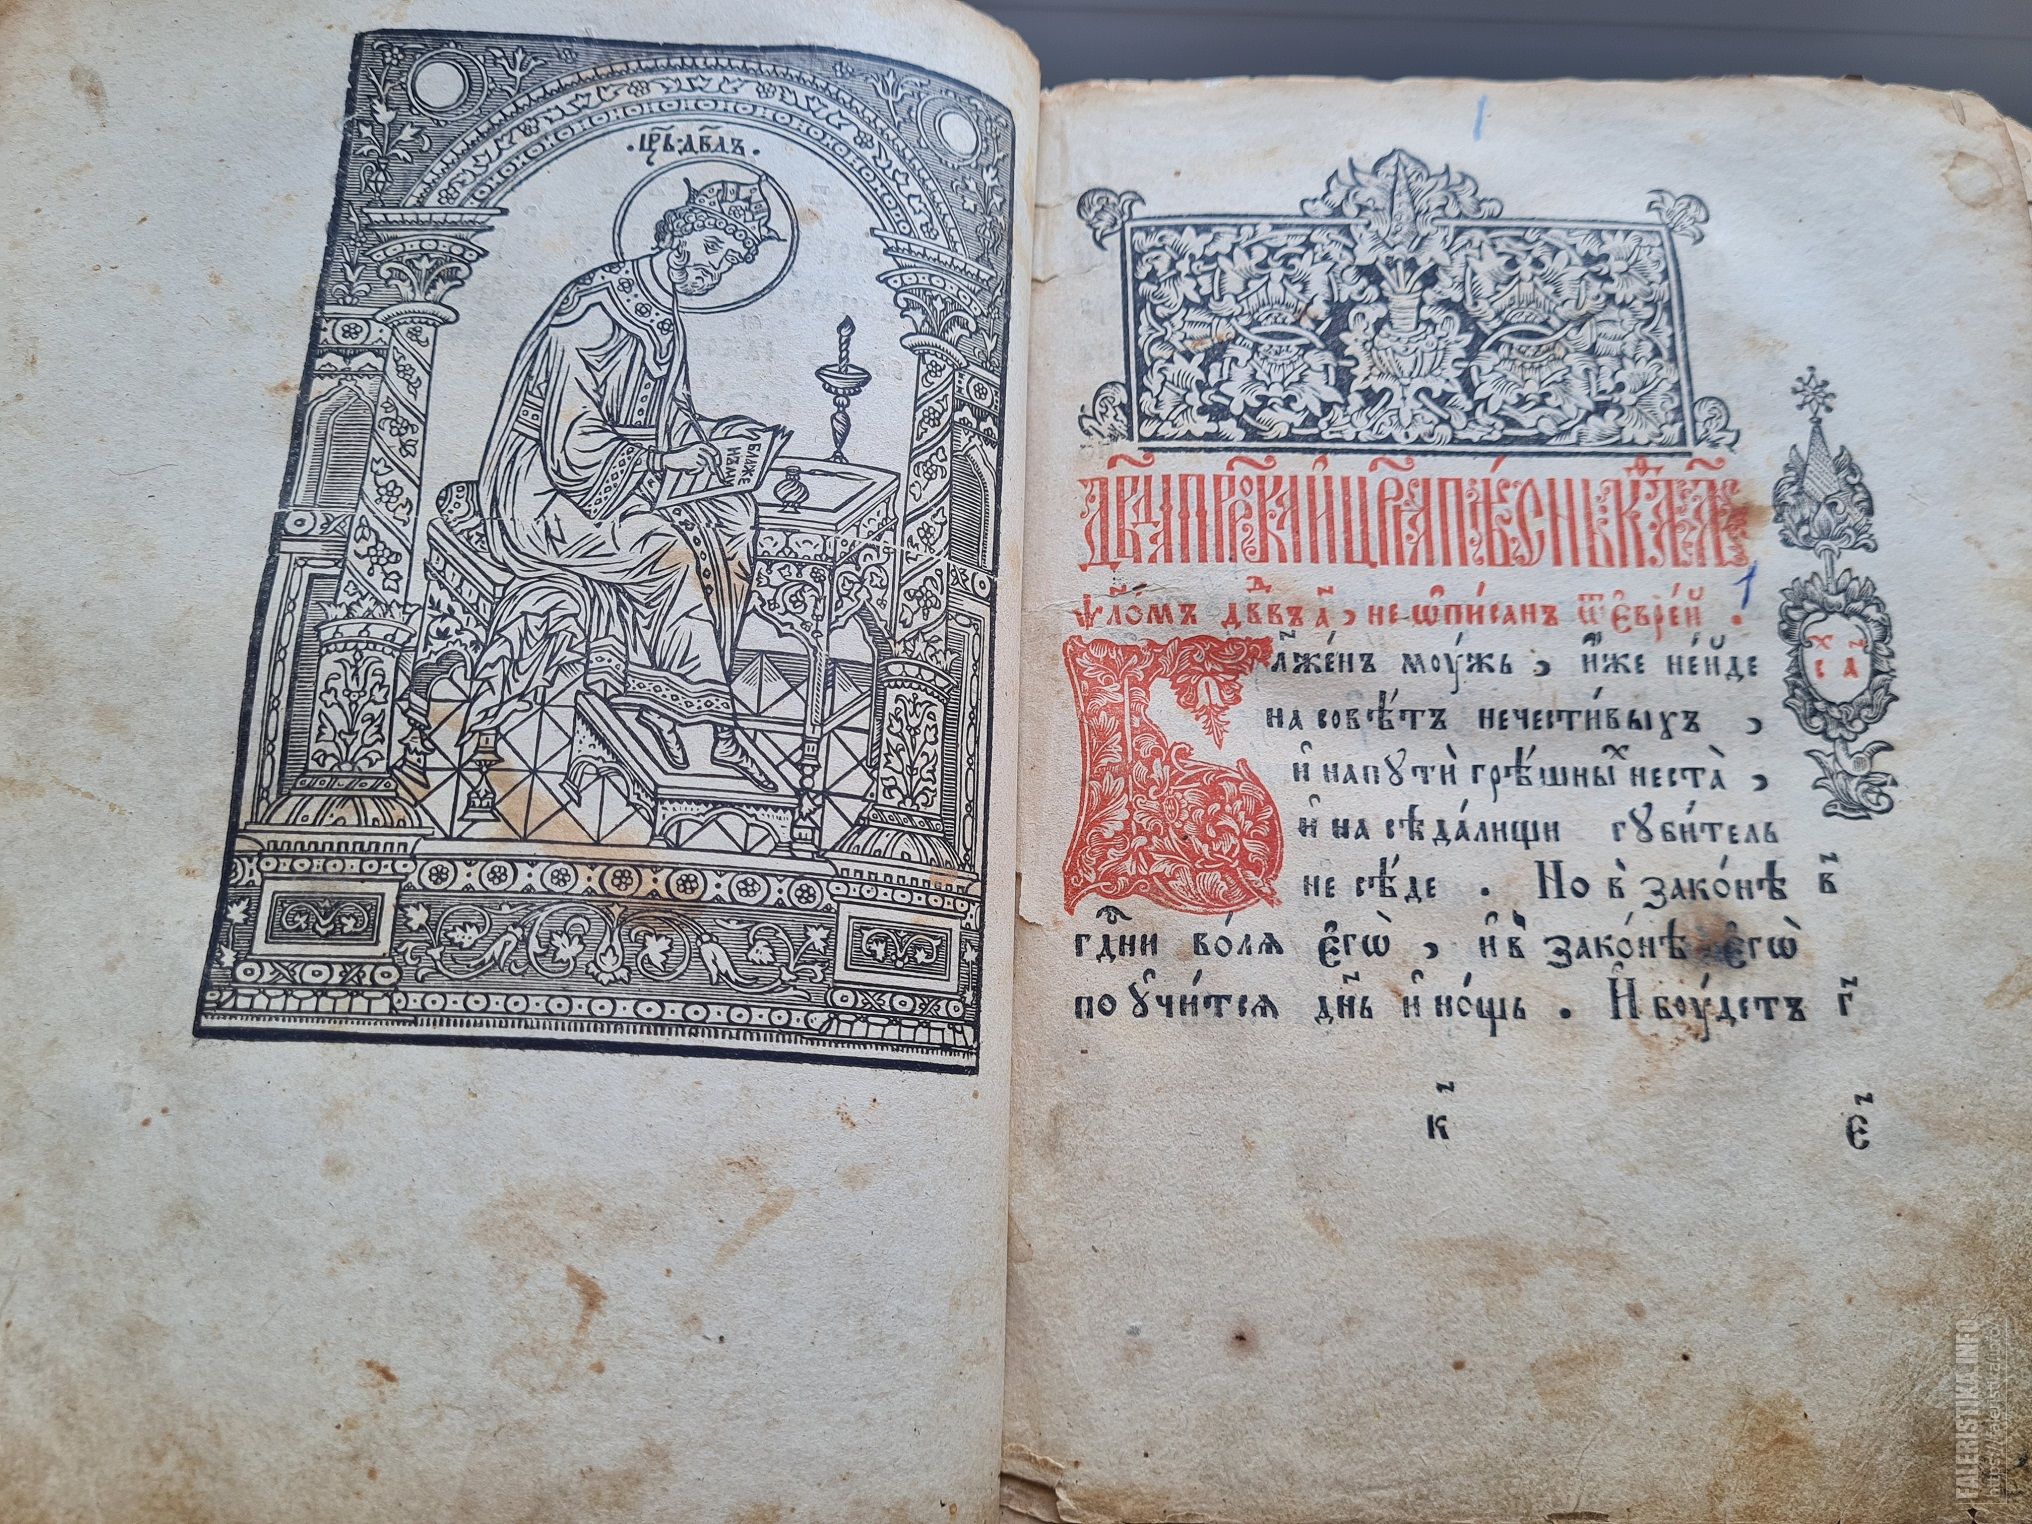 ·цр҃ь·дв҃дъ·
БЛАЖЕ
НЪ МУ
1
Дв҃да прⷪ҇рока и҆ цр҃ѧ̀ пѣ́снь к҃а́ѳ. а҃.
ѱало́мъ дв҃дⷣвъ а҃, не ѡ҆пи́санъ ѿ є҆врє́й .
1
Бл҃же́нъ мꙋ́жь, и҆́же не и҆́де
х҃ с҃ а҃
на совѣ́тъ нечести́выхъ,
и҆ на пꙋтѝ грѣ́шныⷯ не ста̀,
и҆ на сѣда́лищи гꙋби́тель
не сѣ́де . Но в̾ зако́нѣ в҃
гдⷭ҇ни во́лѧ є҆гѡ̀, и҆ в̾ зако́нѣ є҆гѡ̀
поꙋчи́тсѧ дн҃ь и҆ но́щь . И҆ бꙋ́детъ г҃
к҃ є҃
FALERISTIKA.INFO